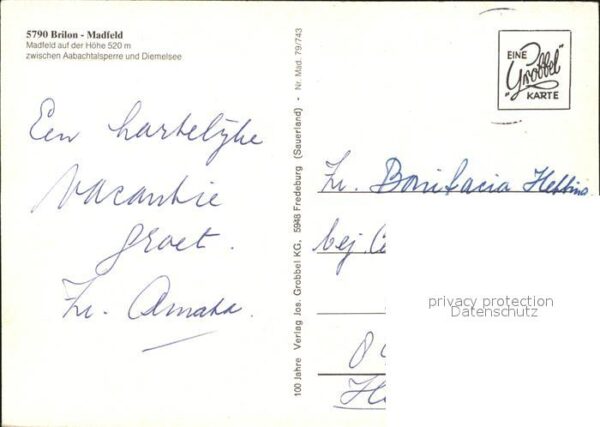 5790 Brilon - Madfeld
Madfeld auf der Höhe 520 m
zwischen Aabachtalsperre und Diemelsee
Een hartelijke
vacantie
groet.
Zr. Amata
100 Jahre Verlag Jos. Grobbel KG, 5948 Fredeburg (Sauerland) - Nr. Mad. 79/743
EINE
"Grobbel"
KARTE
Zr. Bonifacia
bej.
privacy protection
Datenschutz